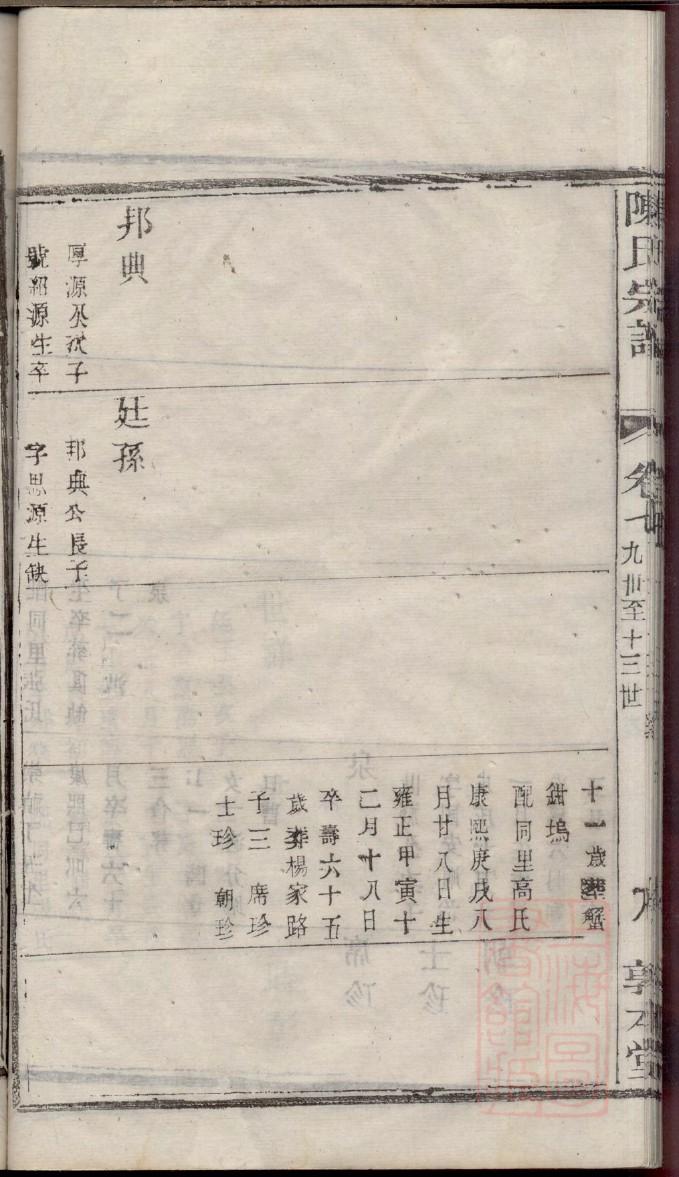 陳氏宗譜
卷七
九卅至十三世
敦本堂
十一歲葬蟹
鉗塢
配同里高氏
康熙庚戌八
月廿八日生
雍正甲寅十
二月十八日
卒壽六十五
歲葬楊家路
子三 席珍
士珍 朝珍
邦典
厚源公次子
號紹源生卒
廷孫
邦典公長子
字思源生缺